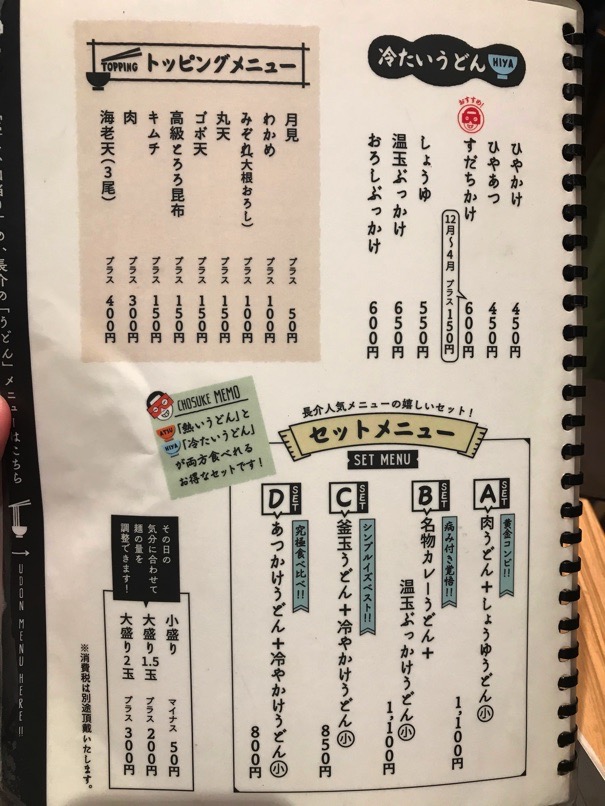 冷たいうどん HIYA
ひやかけ 450円
ひやあつ 450円
おすすめ!
すだちかけ 600円
12月〜4月 プラス150円
しょうゆ 550円
温玉ぶっかけ 650円
おろしぶっかけ 600円
TOPPING トッピングメニュー
月見 プラス 50円
わかめ プラス 100円
みぞれ(大根おろし) プラス 100円
丸天 プラス 150円
ゴボ天 プラス 150円
高級とろろ昆布 プラス 150円
キムチ プラス 150円
肉 プラス 300円
海老天(3尾) プラス 400円
CHOSUKE MEMO
ATSU「熱いうどん」と
HIYA「冷たいうどん」
が両方食べれる
お得なセットです!
長介人気メニューの嬉しいセット!
セットメニュー
SET MENU
A SET
黄金コンビ!!
肉うどん+しょうゆうどん小 1,100円
B SET
病み付き覚悟!!
名物カレーうどん+
温玉ぶっかけうどん小 1,100円
C SET
シンプルイズベスト!!
釜玉うどん+冷やかけうどん小 850円
D SET
究極食べ比べ!!
あつかけうどん+冷やかけうどん小 800円
その日の
気分に合わせて
麺の量を
調整できます!
小盛り マイナス 50円
大盛り1.5玉 プラス 200円
大盛り2玉 プラス 300円
※消費税は別途頂戴いたします。
め、長介の「うどん」メニューはこちら
UDON MENU HERE!!